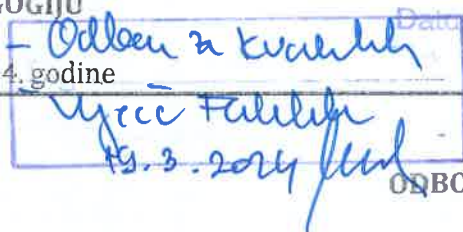 GOGIJU
Datu
- Odbor za kvalitet
4. godine
Vijeće Fakulteta
19.3.2024
ODBO